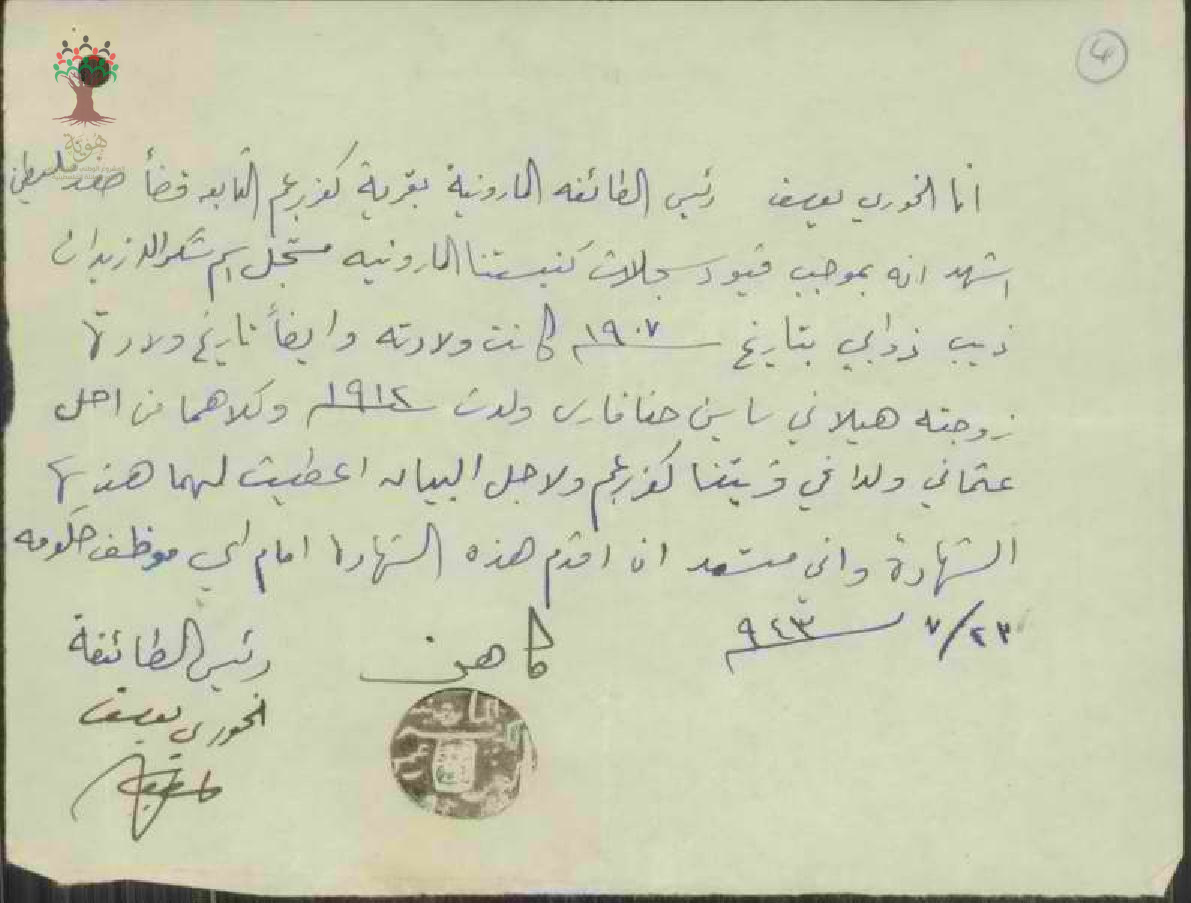 ٤
هوية
انا الخوري يوسف رئيس الطائفه المارونية بقرية كفربرعم التابعه قضأ صفد فلسطين
اشهد انه بموجب قيود سجلات كنيستنا المارونيه مسجل اسم شكرالله زيدان
ذيب بتاريخ ١٩٠٧ كانت ولادته وايضاً تاريخ ولادتها
زوجته هيلاني ياسين حنا فارس ولدت ١٩١٢ وكلاهما من اصل
عثماني ولدا في قريتنا كفربرعم ولاجل البيان اعطيت لهما هذه
الشهادة واني مستعد ان اقدم هذه الشهادة امام اي موظف حكومه
٢٣/٧ ٩٤٣
كاهن
رئيس الطائفة
الخوري يوسف